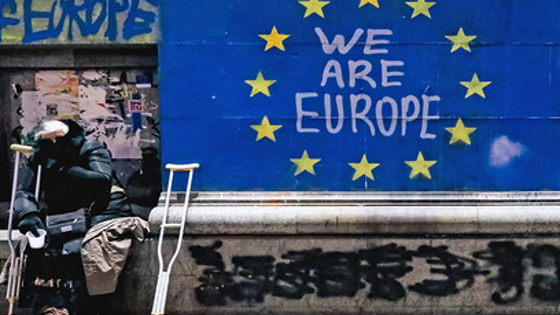 EUROPE
WE
ARE
EUROPE